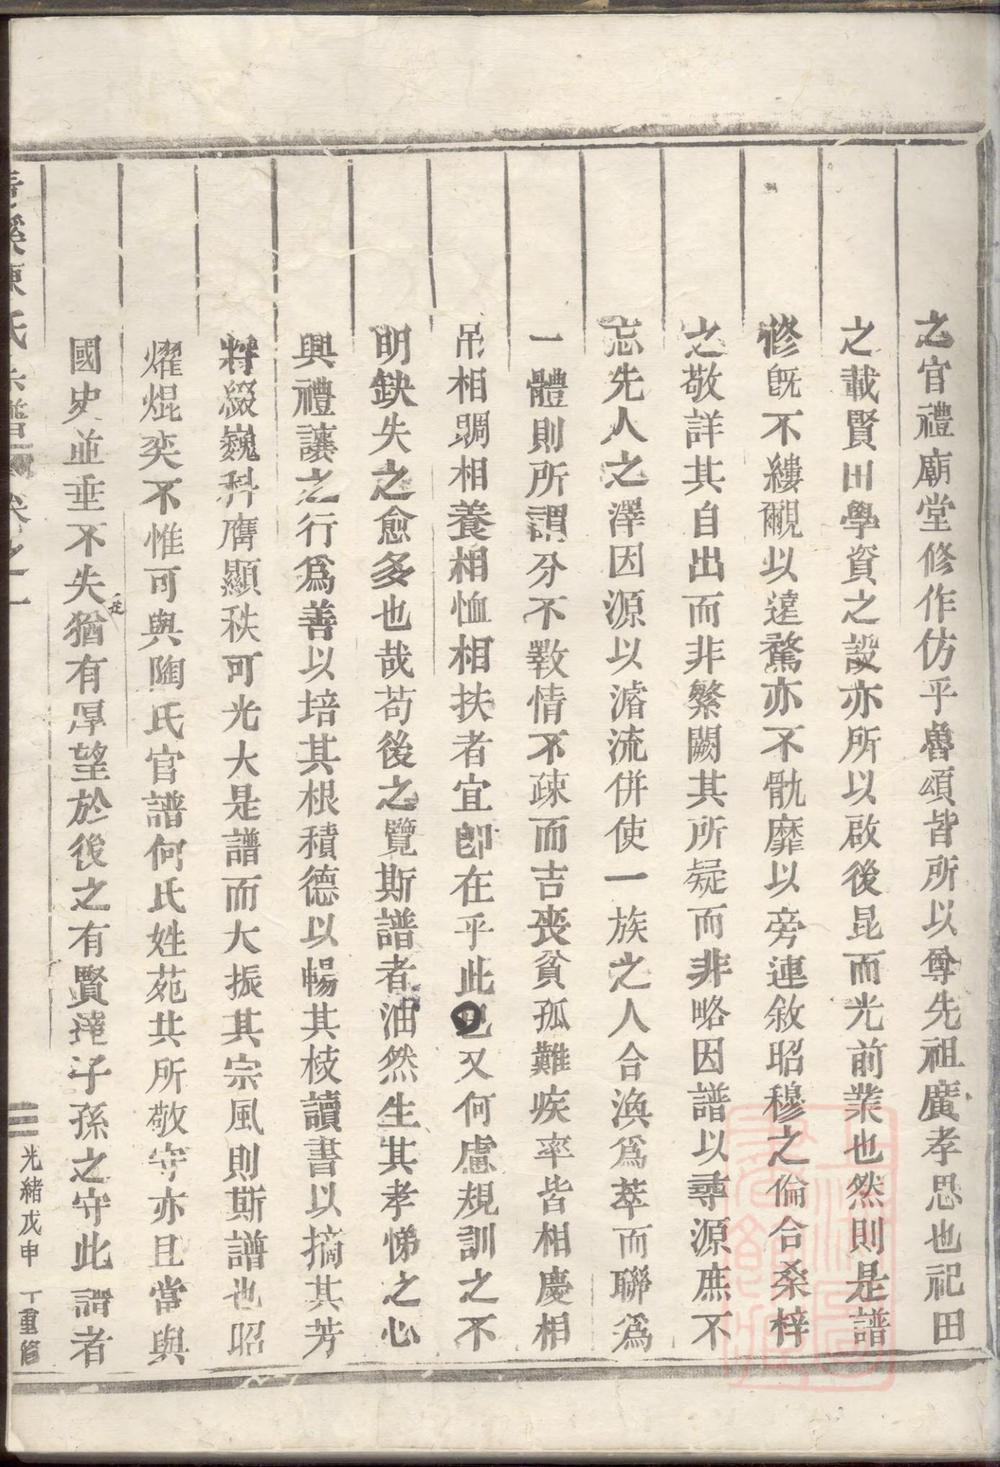 之官禮廟堂修作仿乎魯頌皆所以尊先祖廣孝思也祀田
之載賢田學資之設亦所以啟後昆而光前業也然則是譜
修旣不縷覼以遠騖亦不骩靡以旁連敘昭穆之倫合桑梓
之敬詳其自出而非繁闕其所疑而非略因譜以尋源庶不
忘先人之澤因源以濬流併使一族之人合渙爲萃而聯爲
一體則所謂分不斁情不疎而吉喪貧孤難疾率皆相慶相
吊相賙相養相恤相扶者宜卽在乎此已又何慮規訓之不
明缺失之愈多也哉苟後之覽斯譜者油然生其孝悌之心
興禮讓之行爲善以培其根積德以暢其枝讀書以摘其芳
將綴巍科膺顯秩可光大是譜而大振其宗風則斯譜也昭
燿焜奕不惟可與陶氏官譜何氏姓苑共所敬守亦且當與
國史並垂不失猶有厚望於後之有賢達子孫之守此譜者
溪陳氏宗譜 卷之一
光緒戊申
丁重修